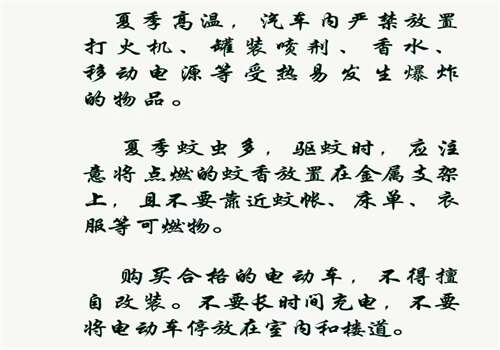 夏季高温，汽车内严禁放置
打火机、罐装喷剂、香水、
移动电源等受热易发生爆炸
的物品。
夏季蚊虫多，驱蚊时，应注
意将点燃的蚊香放置在金属支架
上，且不要靠近蚊帐、床单、衣
服等可燃物。
购买合格的电动车，不得擅
自改装。不要长时间充电，不要
将电动车停放在室内和楼道。